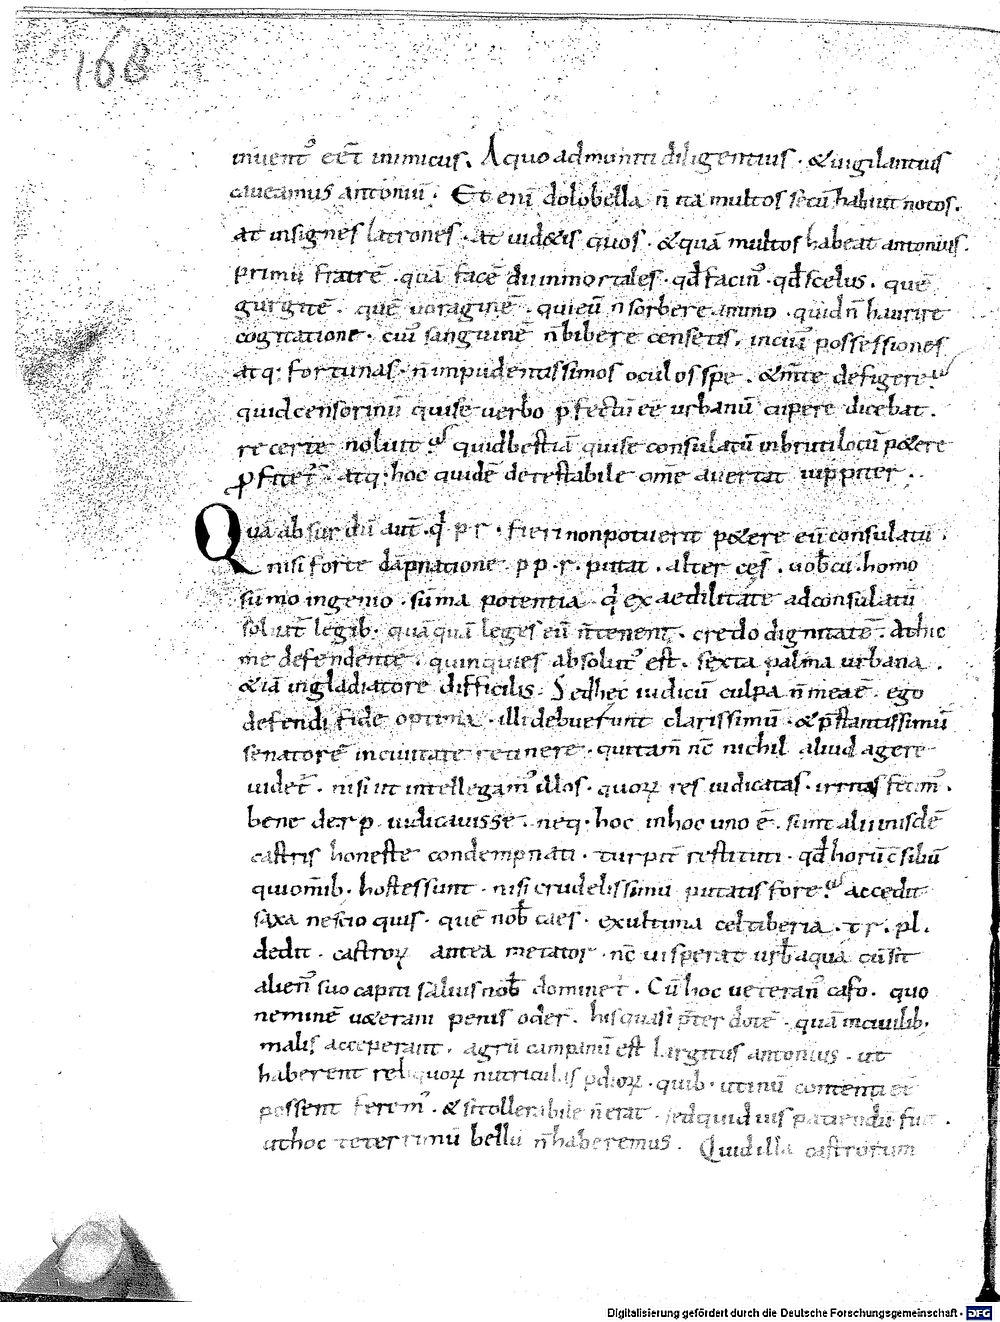 168
inuent᾽ eēt inimicus. Aquo admoniti diligentius · &uigilantius
caueamus antoniū. Et eni dolobella n̄ ita multos secū habuit notos.
at insignes latrones · at uid&is quos · &quā multos habeat antonius.
primū fratrē · quā facē dii inmortales · qd̄ facin᾽ · qd̄ scelus · quē
gurgitē · quē uoraginē · quieū n̄ sorbere animo · quid n̄ haurire
cogitatione · cui᾽ sanguinē n̄ bibere censetis. inciui᾽ possessiones
atq: fortunas · n̄ impudentissimos oculos spe · &m̄te defigere?
quid censorinū quise uerbo p̄fectū eē urbanū cupere dicebat.
re certe noluit? quid bestiā quise consulatū inbruti locū p&ere
p̄fitet᾽r · atq: hoc quidē detestabile om̄e auertat iuppiter.
Quā absurdū aut̄ · qd̄ p r · fieri non potuerit p&ere eū consulatū.
nisi forte dāpnatione · p p · r · putat · alter cęs̄ · uob̄cū · homo
sūmo ingenio · sūma potentia · q̄ ex aedilitate ad consulatū
soluit̄ legib · quāquā leges eū n̄ tenent · credo dignitatē · &hic
me defendente · quinquies absolut᾽ est · sexta palma urbana.
&iā in gladiatore difficilis · Sed hec iudicū culpa n̄ mea ē · ego
defendi fide optima · illi debuerunt clarissimū · &p̄stantissimū
senatorē in ciuitate retinere · qui tam̄ nc̄ nichil aliud agere
uidet̄ · nisi ut intellegam᾽ illos · quorꝝ res iudicatas · irritas fecim᾽.
bene de r p · iudicauisse · neq · hoc inhoc uno ē · sunt alii iniisdē
castris honeste condempnati · turpit̄ restituti · qd̄ horū csiliū
qui om̄ib · hostes sunt · nisi crudelissimū putatis fore? accedit
saxa nescio quis · quē nob̄ caes · ex ultima celtiberia · t r · pl.
dedit · castrorꝝ antea metator · nc̄ ut sperat urb̄ a qua cū sit
alien᾽ suo capiti saluis nob̄ dominet᾽r. Cū hoc ueteran᾽ cafo · quo
neminē u&erani peius oder̄ · his quasi p̄ter dotē · quā in ciuilib.
malis acceperant · agrū campanū est largitus antonius · ut
haberent reliquorꝝ nutriculas p̄diorꝝ · quib · utinā contenti eē
possent ferem᾽ · &si tollerabile n̄ erat · sed quiduis patiendū fuit.
ut hoc teterrimū bellū n̄ haberemus. Quid illa castrorum
Digitalisierung gefördert durch die Deutsche Forschungsgemeinschaft · DFG